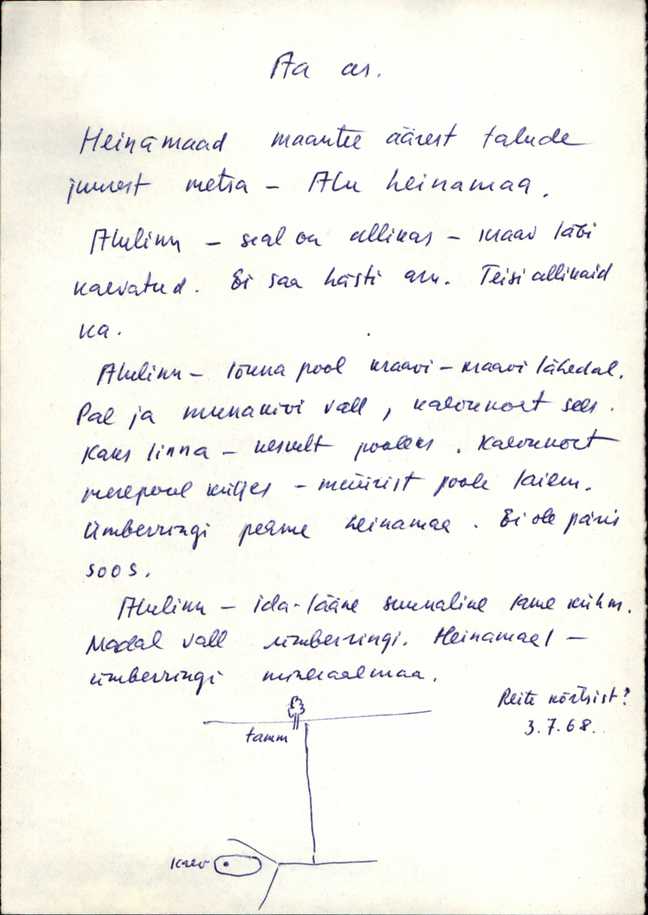 Aa as.
Heinamaad maantee äärest talude
juurest metsa – Alu heinamaa.
Alulinn – seal on allikas – kraav läbi
kaevatud. Ei saa hästi aru. Teisi allikaid
ka.
Alulinn – lõuna pool kraavi – kraavi lähedal.
Pae ja munakivi vall, kaevukoht sees.
Kaks linna – keskelt pooleks. Kaevukoht
merepool küljes – müürist poole laiem.
Ümberringi pehme heinamaa. Ei ole päris
soos.
Alulinn – ida-lääne suunaline lame kühm.
Madal vall ümberringi. Heinamael –
ümberringi mineraalmaa.
3.7.68.
tamm
kaev